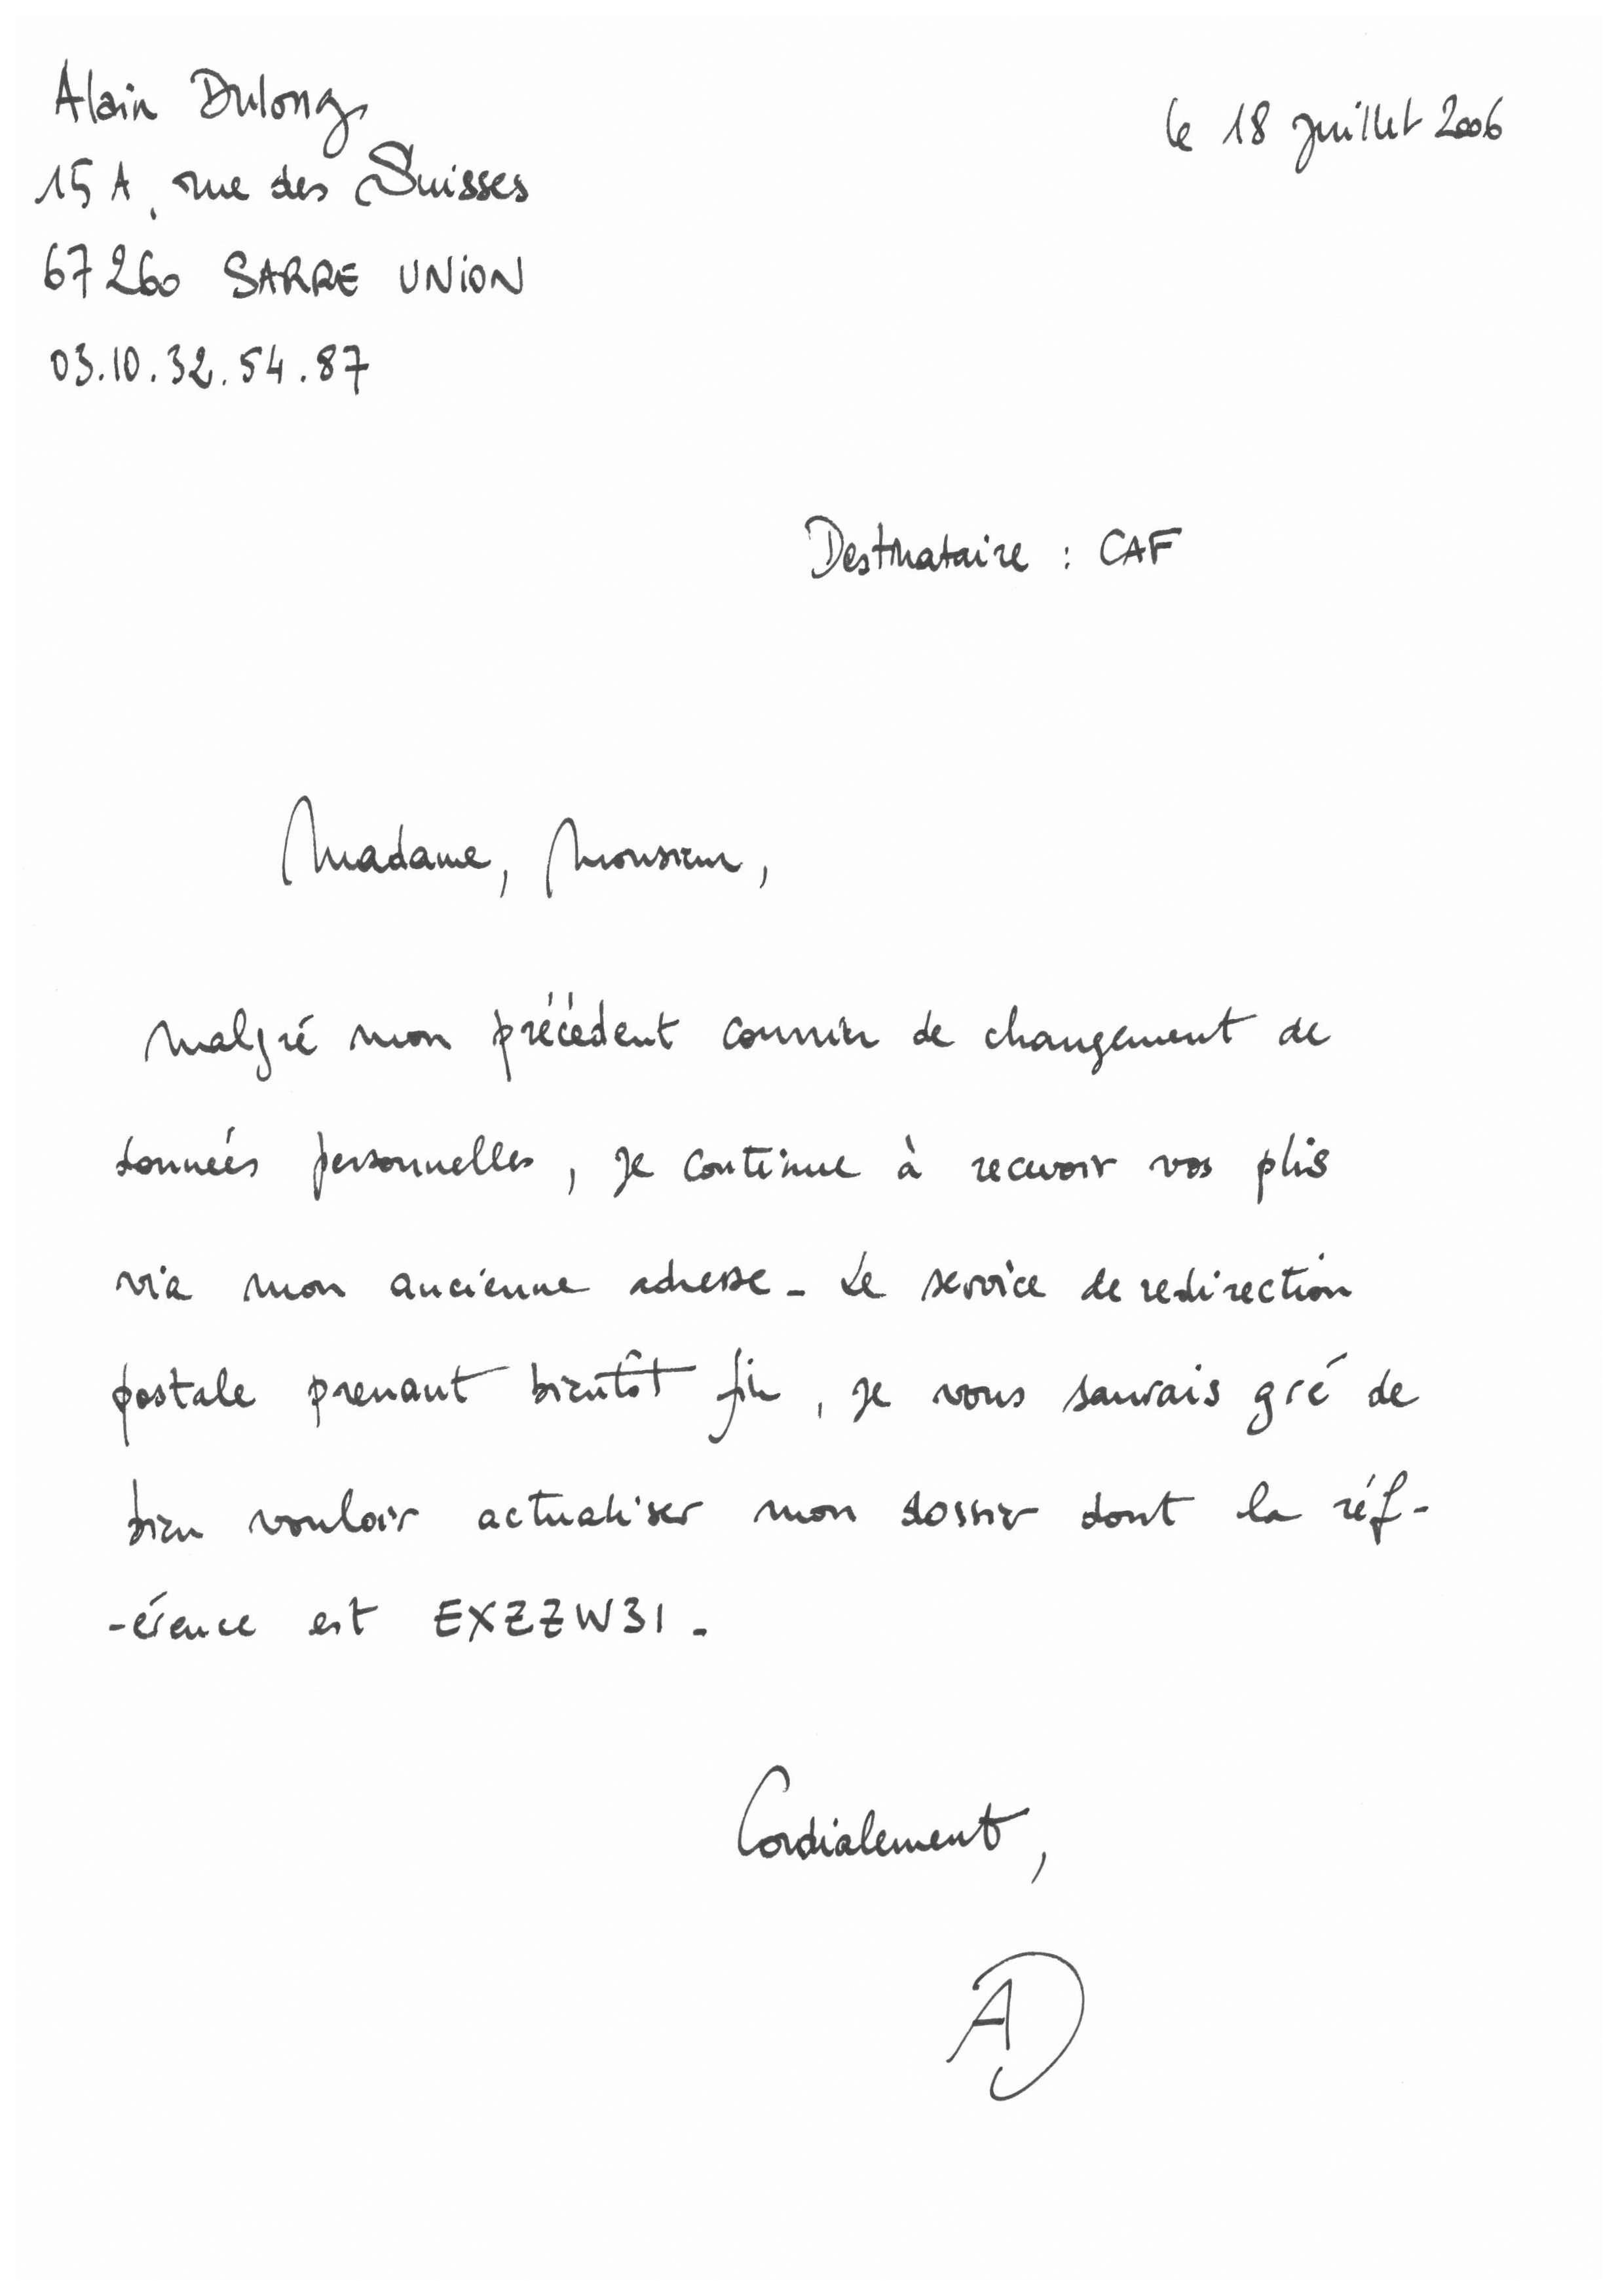 Alain Dulong
le 18 juillet 2006
15 A, rue des Suisses
67260 SARRE UNION
03.10.32.54.87
Destinataire : CAF
Madame, Monsieur,
Malgré mon précédent courrier de changement de
données personnelles, je continue à recevoir vos plis
via mon ancienne adresse. Le service de redirection
postale prenant bientôt fin, je vous saurais gré de
bien vouloir actualiser mon dossier dont la réf-
-érence est EXZZW31.
Cordialement,
AD